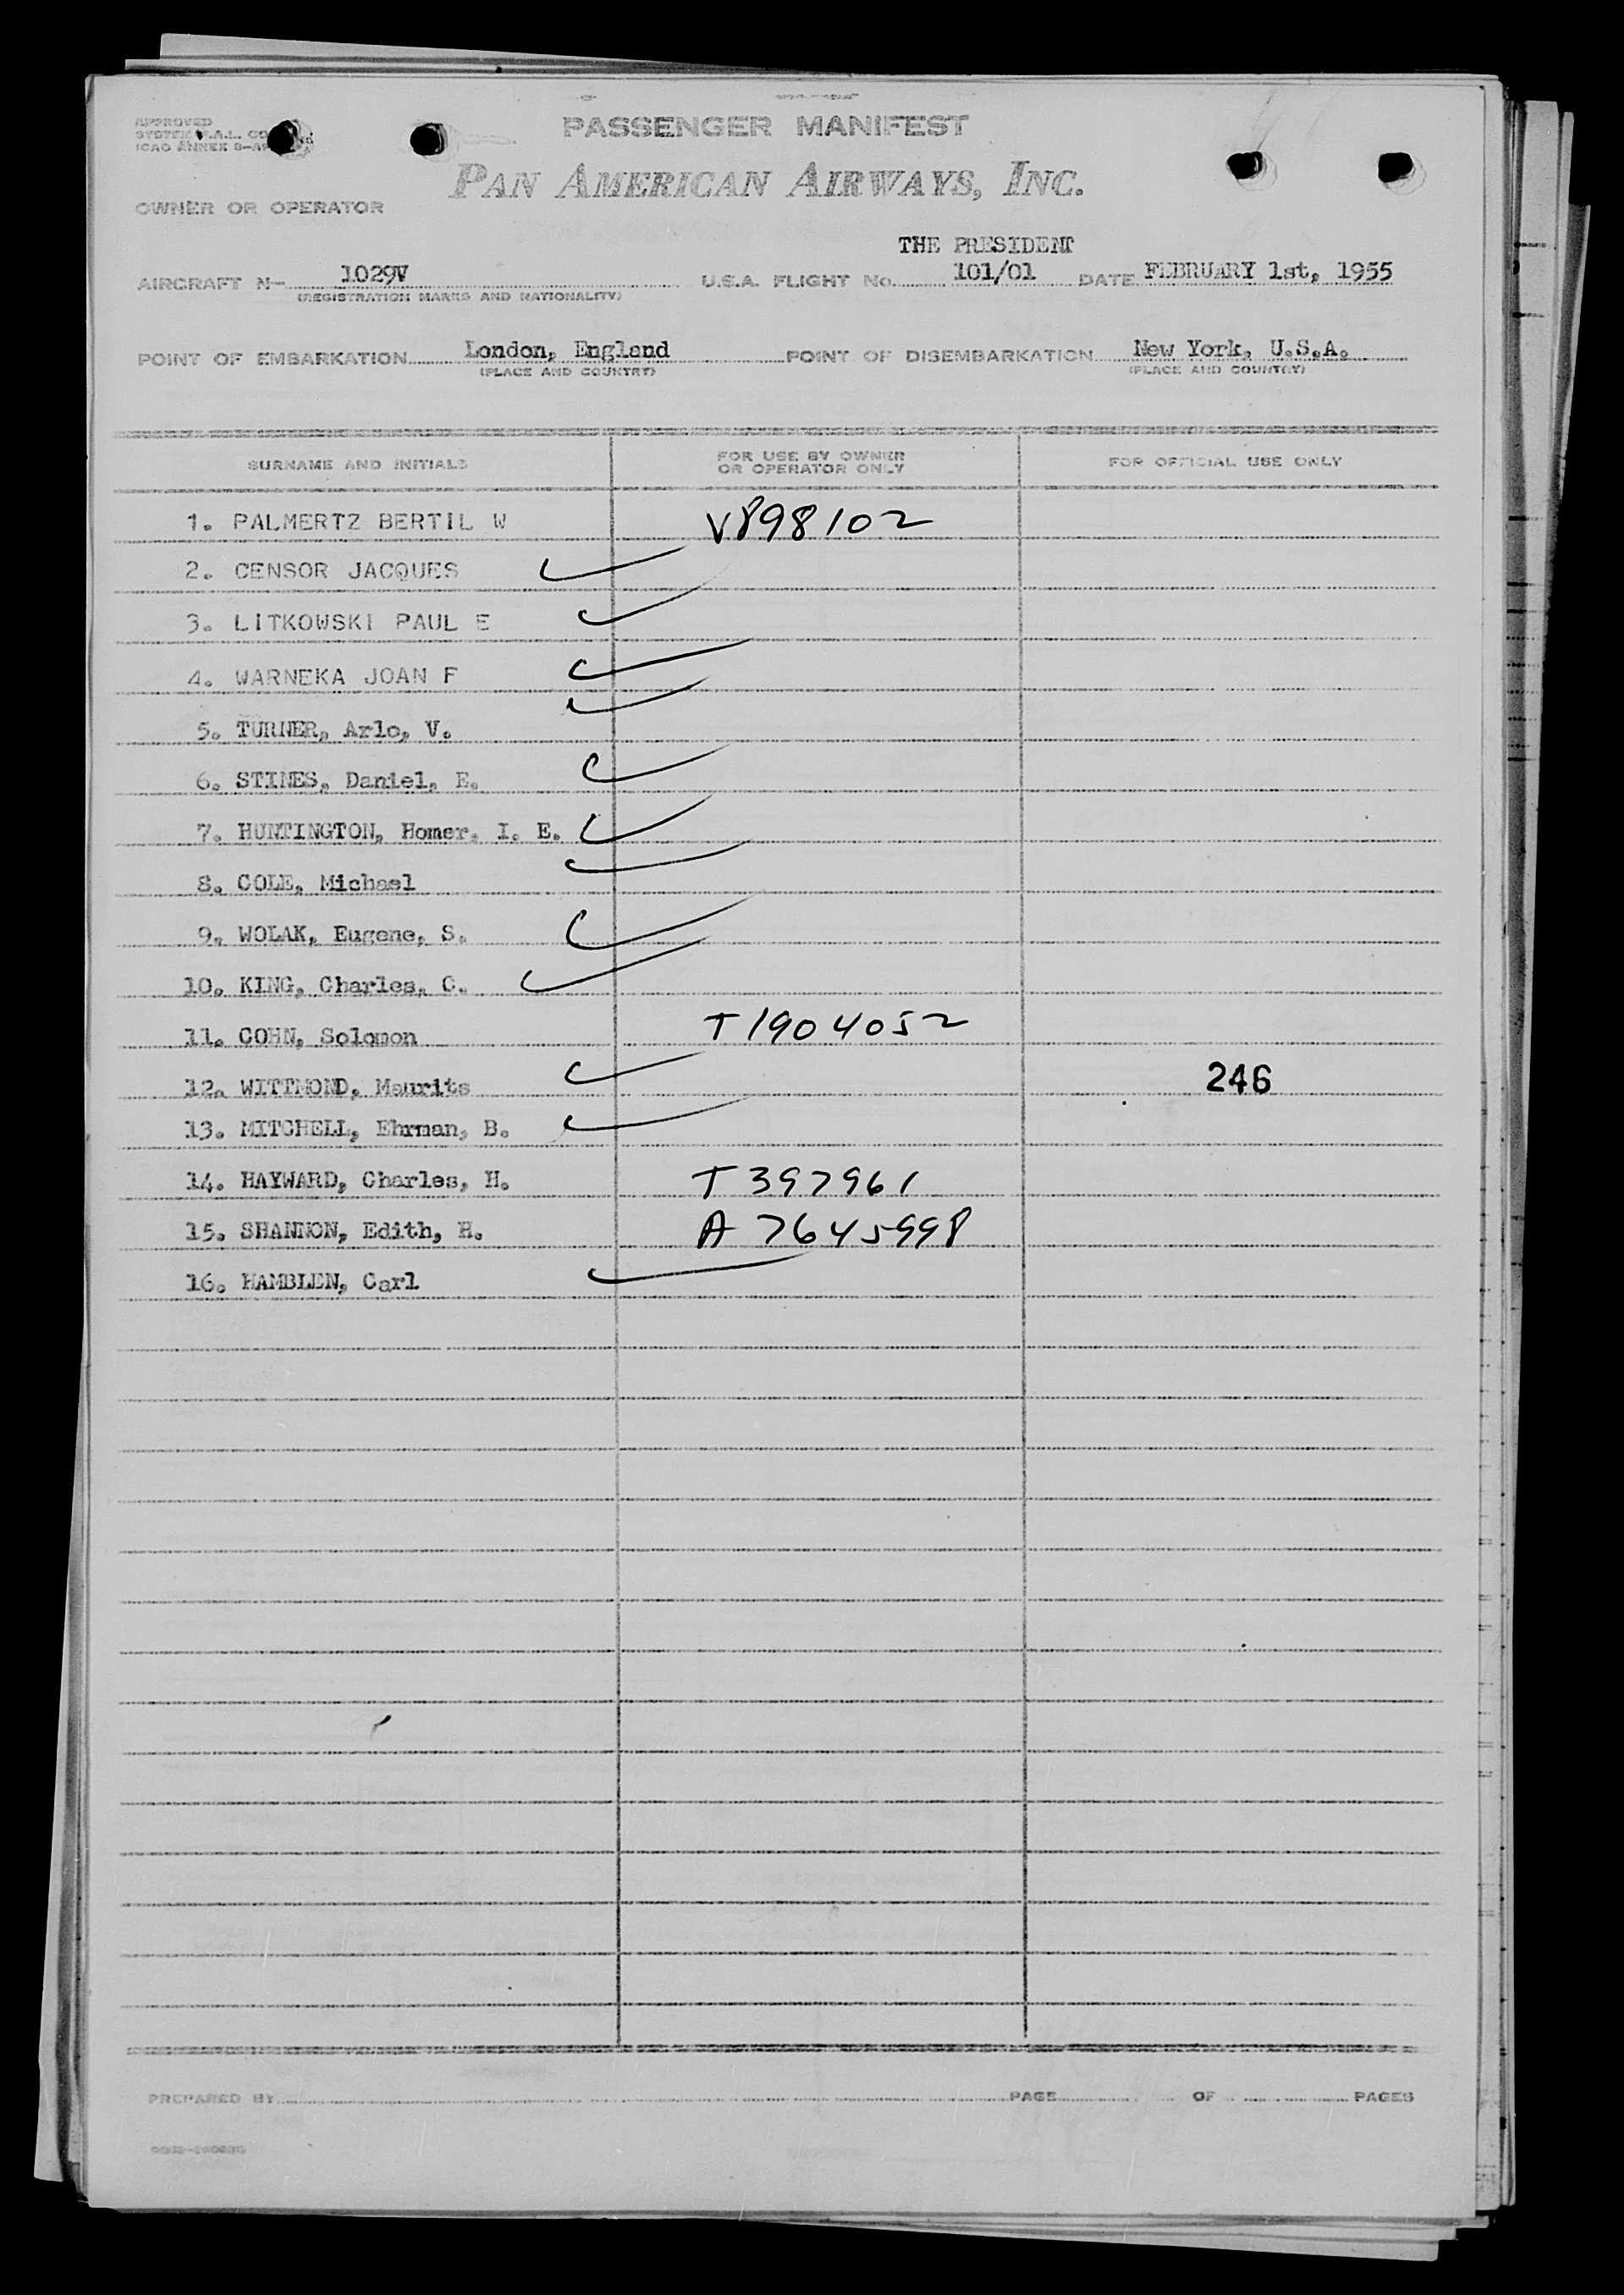 APPROVED
PASSENGER MANIFEST
PAN AMERICAN AIRWAYS, INC.
OWNER OR OPERATOR
THE PRESIDENT
AIRCRAFT N- 1029V U.S.A. FLIGHT No. 101/01 DATE FEBRUARY 1st, 1955
(REGISTRATION MARKS AND NATIONALITY)
POINT OF EMBARKATION London, England POINT OF DISEMBARKATION New York, U.S.A.
(PLACE AND COUNTRY) (PLACE AND COUNTRY)
SURNAME AND INITIALS FOR USE BY OWNER OR OPERATOR ONLY FOR OFFICIAL USE ONLY
1. PALMERTZ BERTIL W V898102
2. CENSOR JACQUES
3. LITKOWSKI PAUL E
4. WARNEKA JOAN F
5. TURNER, Arlo, V.
6. STINES, Daniel, E.
7. HUNTINGTON, Homer. I. E.
8. COLE, Michael
9. WOLAK, Eugene, S.
10. KING, Charles, C.
11. COHN, Solomon T1904052
12. WITTMOND, Maurits 246
13. MITCHELL, Ehrman, B.
14. HAYWARD, Charles, H. T397961
15. SHANNON, Edith, H. A7645998
16. HAMBLEN, Carl
PREPARED BY PAGE OF PAGES